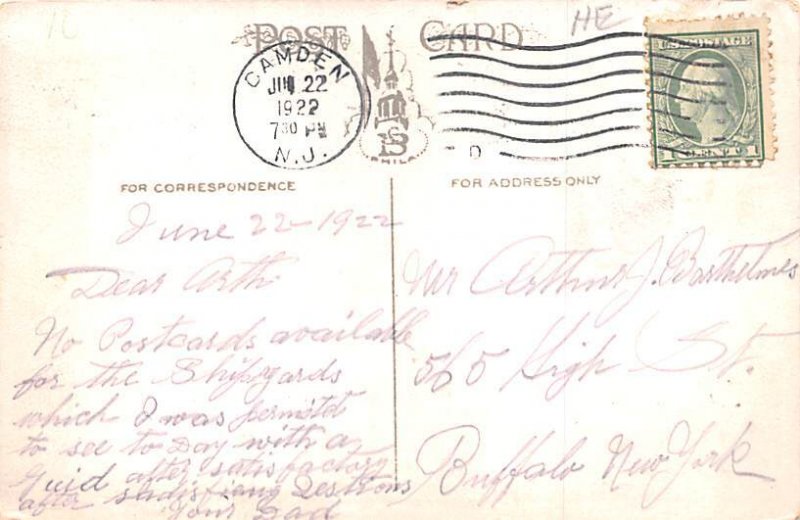 HE
POST CARD
CAMDEN
JUN 22
1922
7 30 PM
N.J.
PHILA
D
U.S. POSTAGE
1 CENT 1
FOR CORRESPONDENCE
FOR ADDRESS ONLY
June 22-1922
Dear Arth
No Postcards available
for the Shipyards
which I was permited
to see to Day with a
Guid after satisfactory
after sadisfiang Qestions
Your Dad
Mr Arthur J. Barthelmes
565 High St.
Buffalo New York